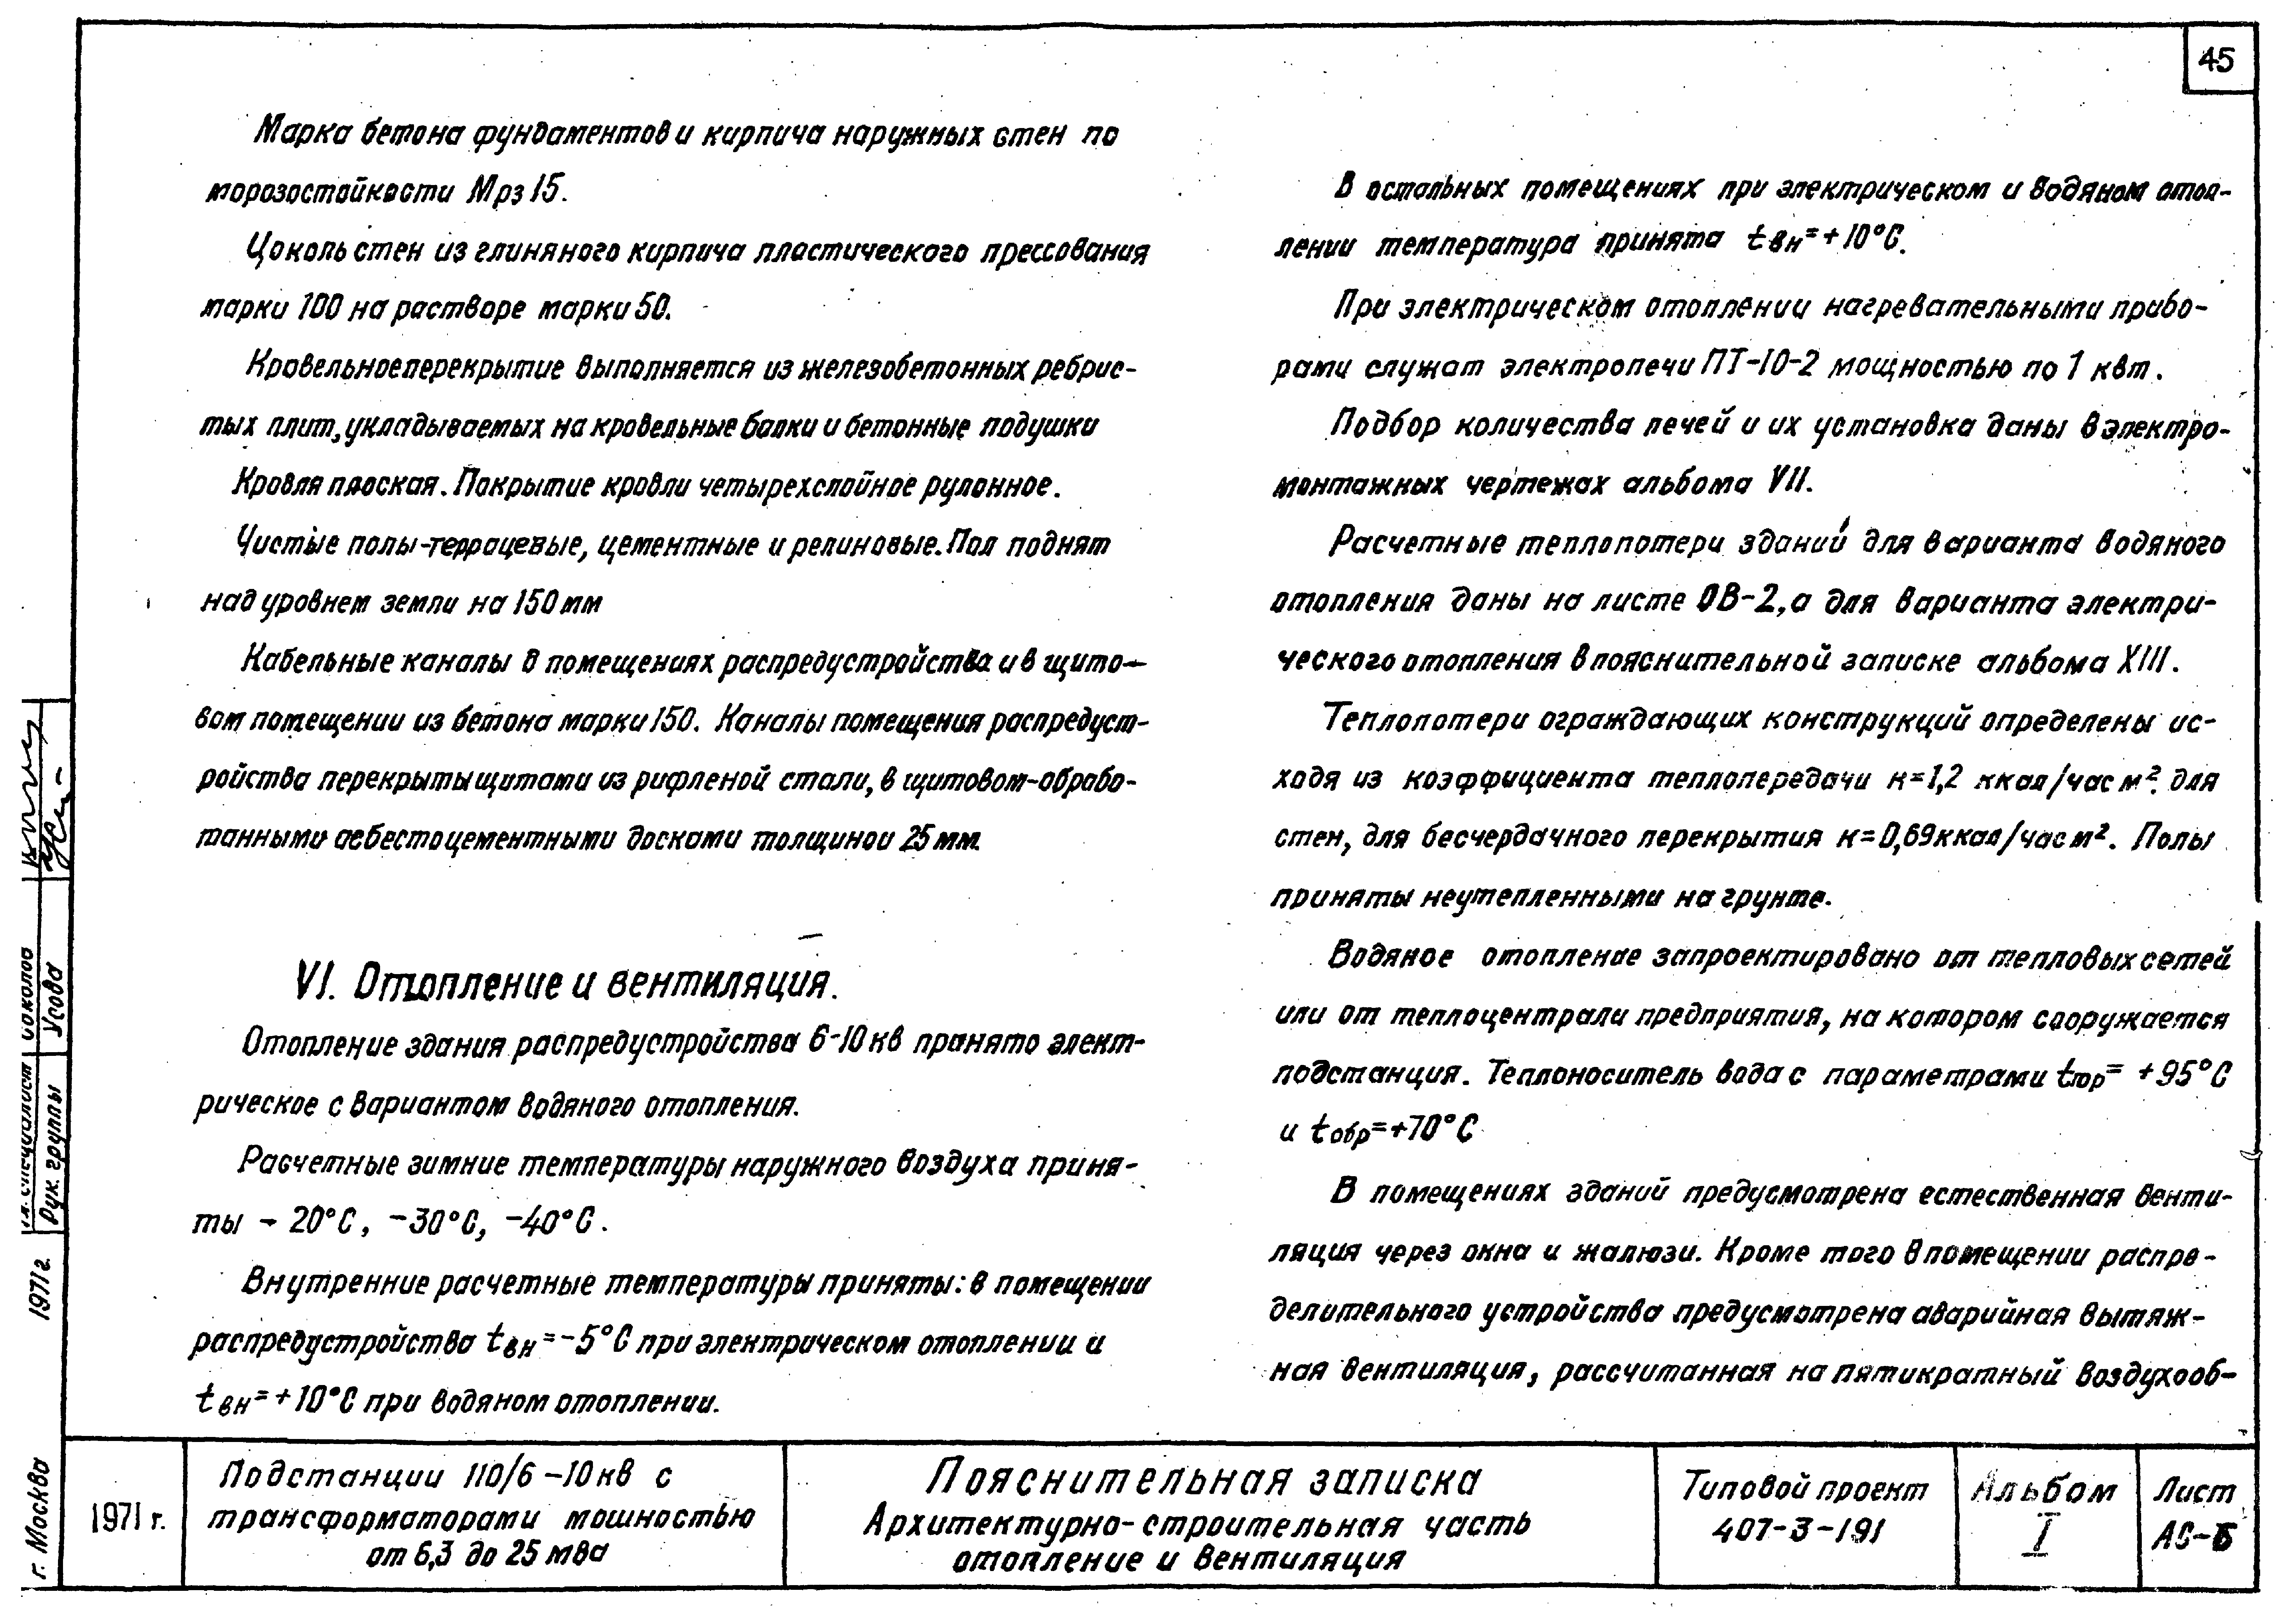 45
Марка бетона фундаментов и кирпича наружных стен по
морозостойкости Мрз 15.
Цоколь стен из глиняного кирпича пластического прессования
марки 100 на растворе марки 50.
Кровельное перекрытие выполняется из железобетонных ребрис-
тых плит, укладываемых на кровельные балки и бетонные подушки
Кровля плоская. Покрытие кровли четырехслойное рулонное.
Чистые полы-террацевые, цементные и релиновые. Пол поднят
над уровнем земли на 150 мм
Кабельные каналы в помещениях распредустройства и в щито-
вом помещении из бетона марки 150. Каналы помещения распредуст-
ройства перекрыты щитами из рифленой стали, в щитовом-обрабо-
танными асбестоцементными досками толщиной 25 мм.
VI. Отопление и вентиляция.
Отопление здания распредустройства 6-10 кв принято элект-
рическое с вариантом водяного отопления.
Расчетные зимние температуры наружного воздуха приня-
ты - 20°С, -30°С, -40°С.
Внутренние расчетные температуры приняты: в помещении
распредустройства tвн=-5°С при электрическом отоплении и
tвн=+10°С при водяном отоплении.
В остальных помещениях при электрическом и водяном отоп-
лении температура принята tвн=+10°С.
При электрическом отоплении нагревательными прибо-
рами служат электропечи ПТ-10-2 мощностью по 1 квт.
Подбор количества печей и их установка даны в электро-
монтажных чертежах альбома VII.
Расчетные теплопотери зданий для варианта водяного
отопления даны на листе ОВ-2, а для варианта электри-
ческого отопления в пояснительной записке альбома XIII.
Теплопотери ограждающих конструкций определены ис-
ходя из коэффициента теплопередачи к=1,2 ккал/час м². для
стен, для бесчердачного перекрытия к=0,69 ккал/час м². Полы
приняты неутепленными на грунте.
Водяное отопление запроектировано от тепловых сетей
или от теплоцентрали предприятия, на котором сооружается
подстанция. Теплоноситель вода с параметрами tгор= +95°С
и tобр=+70°С
В помещениях зданий предусмотрена естественная венти-
ляция через окна и жалюзи. Кроме того в помещении распре-
делительного устройства предусмотрена аварийная вытяж-
ная вентиляция, рассчитанная на пятикратный воздухооб-
Гл. специалист Соколов
Рук. группы Усова
1971 г.
г. Москва
1971 г.
Подстанции 110/6-10 кв с
трансформаторами мошностью
от 6,3 до 25 мва
Пояснительная записка
Архитектурно-строительная часть
отопление и вентиляция
Типовой проект
407-3-191
Альбом
I
Лист